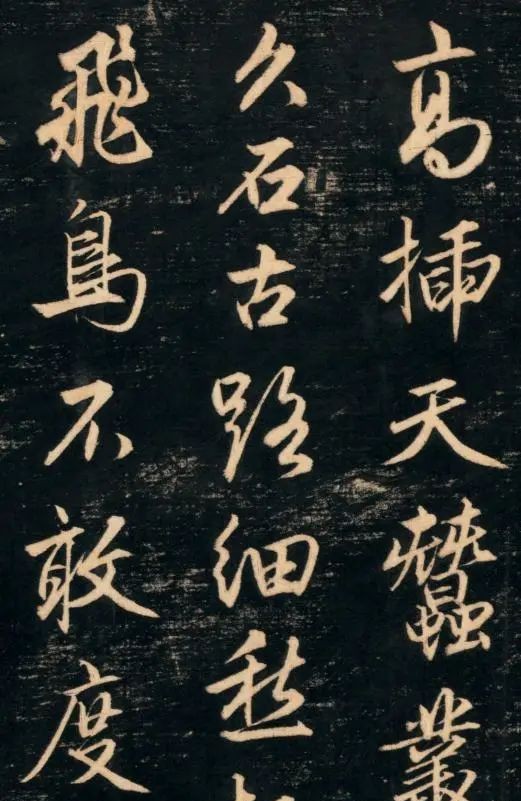 高插天蠶叢
久石古路細愁
飛鳥不敢度